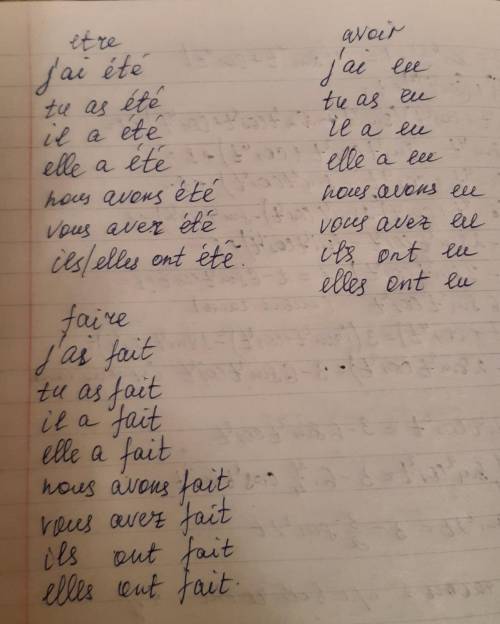 etre
j'ai été
tu as été
il a été
elle a été
nous avons été
vous avez été
ils/elles ont été.
avoir
j'ai eu
tu as eu
il a eu
elle a eu
nous avons eu
vous avez eu
ils ont eu
elles ont eu
faire
j'as fait
tu as fait
il a fait
elle a fait
nous avons fait
vous avez fait
ils ont fait
elles ont fait.